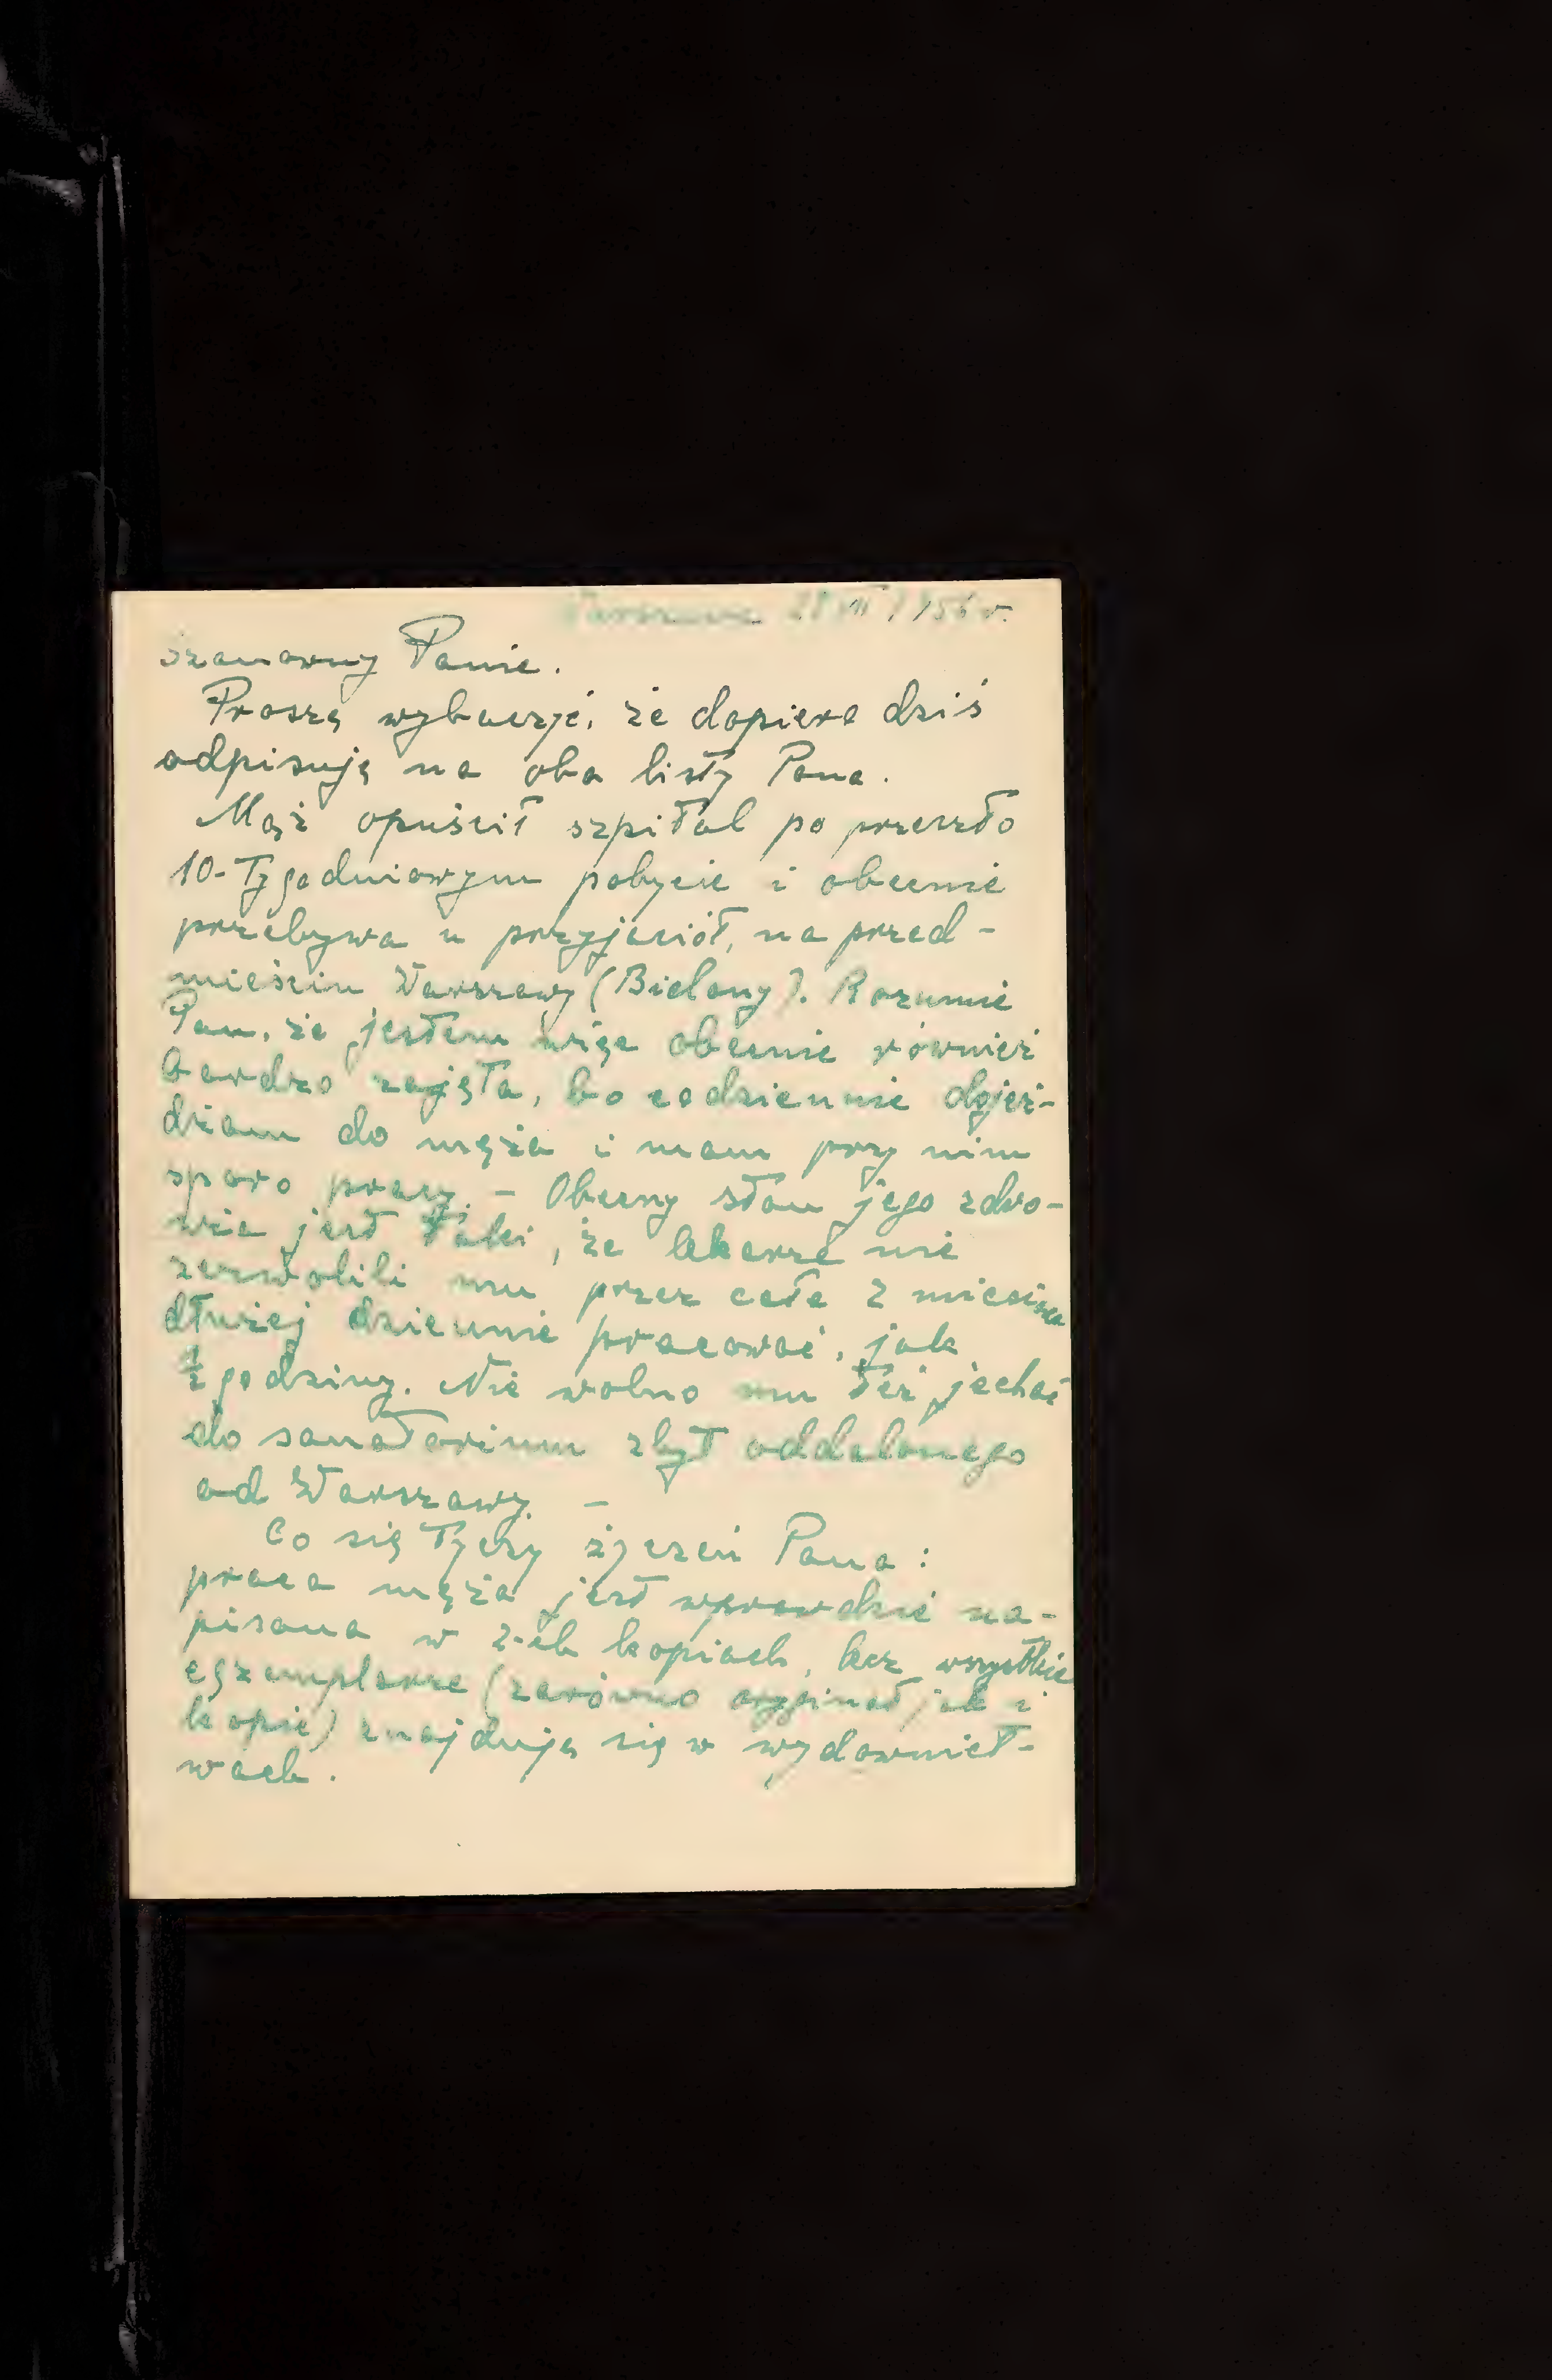 Warszawa 28 VII 1956 r.
Szanowny Panie.
Proszę wybaczyć, że dopiero dziś
odpisuję na oba listy Pana.
Mąż opuścił szpital po przeszło
10-tygodniowym pobycie i obecnie
przebywa u przyjaciół, na przed-
mieściu Warszawy (Bielany). Rozumie
Pan, że jestem więc obecnie również
bardzo zajęta, bo codziennie dojeż-
dżam do męża i mam przy nim
sporo pracy. - Obecny stan jego zdro-
wia jest taki, że lekarze nie
zezwolili mu przez całe 2 miesiące
dłużej dziennie pracować, jak
½ godziny. Nie wolno mu też jechać
do sanatorium zbyt oddalonego
od Warszawy. -
Co się tyczy życzeń Pana:
praca męża jest wprawdzie na-
pisana w 2-ch kopiach, lecz wszystkie
egzemplarze (zarówno oryginał jak i
kopie) znajdują się w wydawnict-
wach.